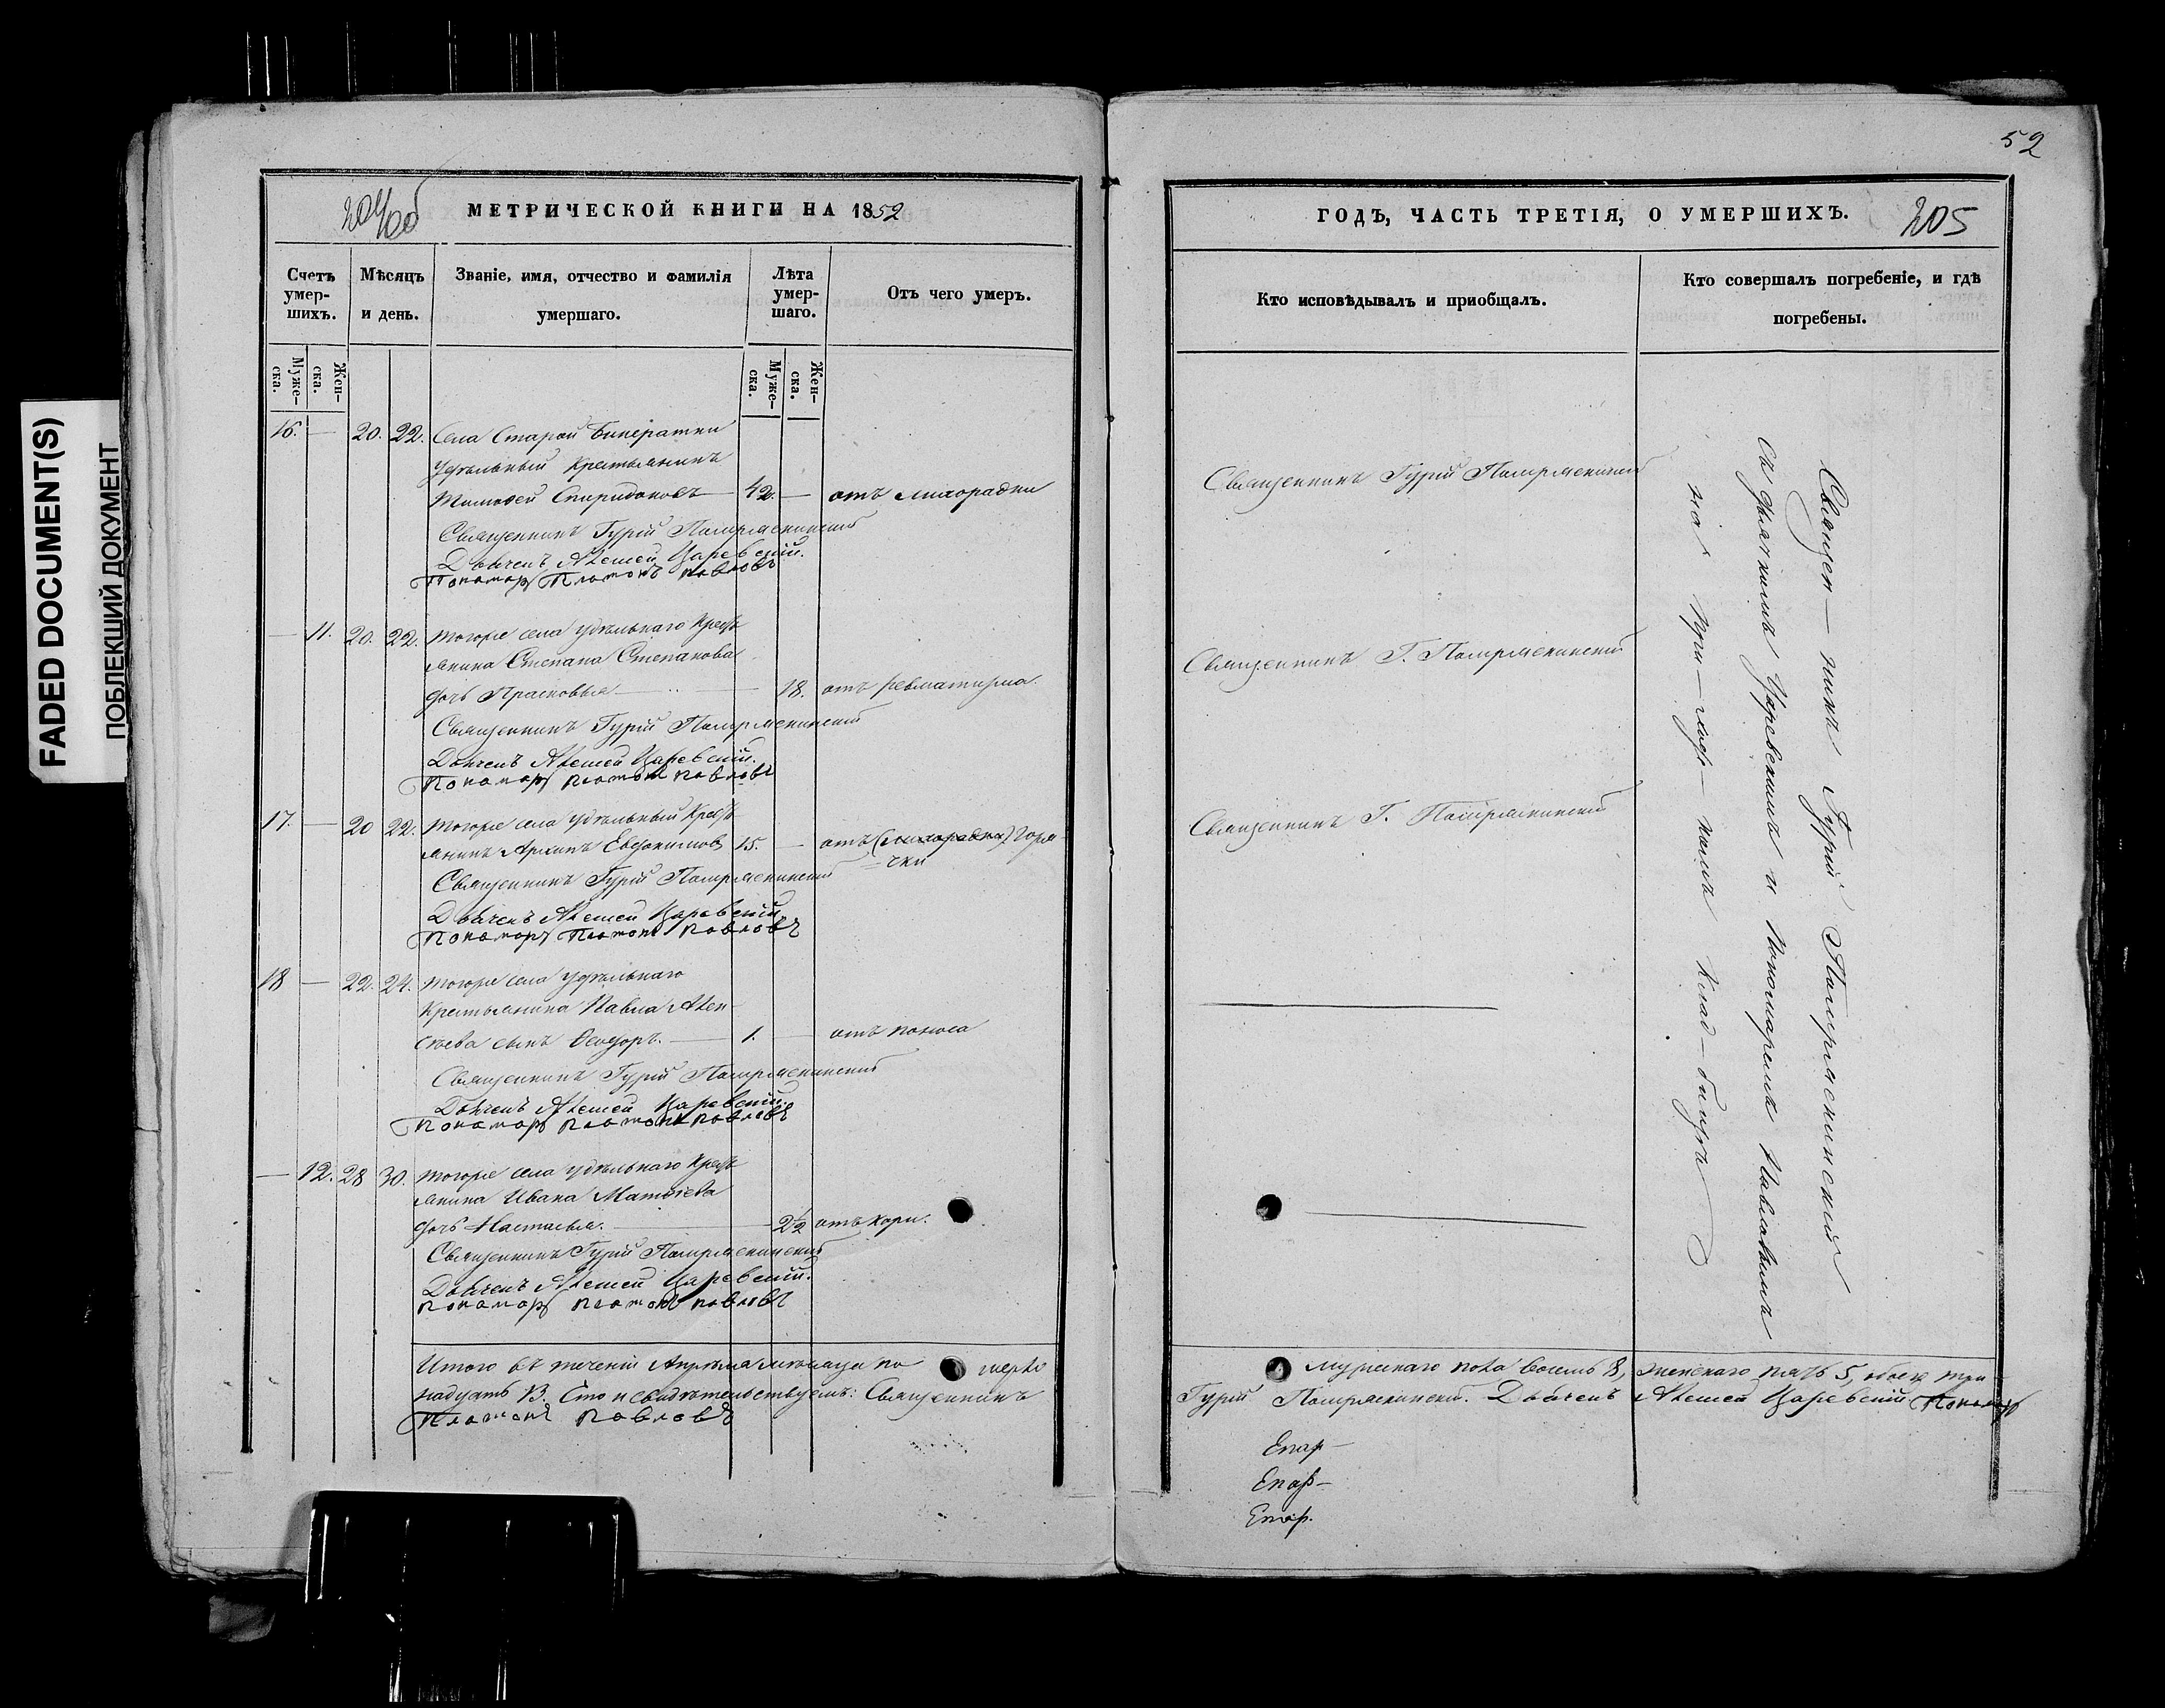 FADED DOCUMENT(S)
ПОБЛЕКШИЙ ДОКУМЕНТ
204об
МЕТРИЧЕСКОЙ КНИГИ НА 1852
Счетъ умер-шихъ.
Мѣсяцъ и день.
Званіе, имя, отчество и фамилія умершаго.
Лѣта умер-шаго.
Отъ чего умеръ.
Муже-ска.
Жен-ска.
Муже-ска.
Жен-ска.
16. — 20. 22. Села Старой
Удѣльный крестьянинъ
Тимофей Спиридоновъ — 42. — отъ лихорадки
Священникъ Гурій
Дьячекъ Алексей Царевскій.
Пономарь Платонъ Павловъ
— 11. 20. 22. Тогоже села удѣльнаго крестъ
янина Степана Степанова
дочь Прасковья — 18. отъ ревматизма.
Священникъ Гурій
Дьячекъ Алексей Царевскій.
Пономарь Платонъ Павловъ
17. — 20 22. Тогоже села удѣльный Крестъ
янинъ Архипъ Евдокимов 15. — отъ (лихорадки) горя-
чки
Священникъ Гурій
Дьячекъ Алексей Царевскій.
Пономарь Платонъ Павловъ
18 — 22. 24. Тогоже села удѣльнаго
Крестьянина Павла Алек-
сѣева сынъ Ѳеодоръ. — 1. — отъ поноса
Священникъ Гурій
Дьячекъ Алексей Царевскій.
Пономарь Платонъ Павловъ
— 12. 28 30. Тогоже села удѣльнаго крестъ
янина Ивана Матвѣева
дочь Настасья. — 2½ отъ кори.
Священникъ Гурій
Дьячекъ Алексей Царевскій.
Пономарь Платонъ Павловъ
Итого въ теченіи Апрѣля мѣсяца по
надцать 13. свидѣтельствуемъ: Священникъ
Платонъ Павловъ
52
ГОДЪ, ЧАСТЬ ТРЕТІЯ, О УМЕРШИХЪ.
205
Кто исповѣдывалъ и приобщалъ.
Кто совершалъ погребеніе, и гдѣ погребены.
Священникъ Гурій
Священникъ Г.
Священникъ Г.
Священ — никъ Гурій
Съ дьячкомъ Царевскимъ и Пономаремъ Павловымъ
на При — ходс — комъ Клад — бищѣ
мужескаго пола восемь 8, женскаго пять 5, обоего три
Гурій Дьячекъ Алексей Царевскій Пономарь
Епар-
Епар-
Епар.